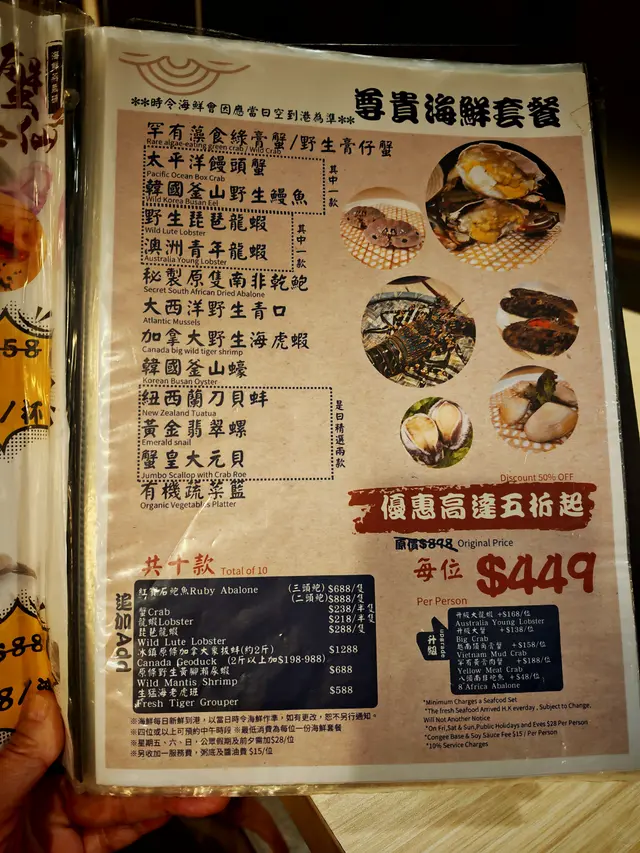 海鮮蒸氣鍋
蟹
仙
58
/杯
**時令海鮮會因應當日空到港為準**
尊貴海鮮套餐
罕有藻食綠膏蟹/野生膏仔蟹
Rare algae-eating green crab / Wild Crab
太平洋饅頭蟹
Pacific Ocean Box Crab
韓國釜山野生鰻魚
Wild Korea Busan Eel
其中一款
野生琵琶龍蝦
Wild Lute Lobster
澳洲青年龍蝦
Australia Young Lobster
其中一款
秘製原隻南非乾鮑
Secret South African Dried Abalone
大西洋野生青口
Atlantic Mussels
加拿大野生海虎蝦
Canada big wild tiger shrimp
韓國釜山蠔
Korean Busan Oyster
紐西蘭刀貝蚌
New Zealand Tuatua
黃金翡翠螺
Emerald snail
蟹皇大元貝
Jumbo Scallop with Crab Roe
是日精選兩款
有機蔬菜籃
Organic Vegetables Platter
Discount 50% OFF
優惠高達五折起
原價$898 Original Price
每位 $449
Per Person
共十款 Total of 10
追加Add
紅寶石鮑魚Ruby Abalone (三頭鮑)$688/隻
(二頭鮑)$888/隻
蟹Crab $238/半隻
龍蝦Lobster $218/半隻
琵琶龍蝦 $288/隻
Wild Lute Lobster
冰鎮原條加拿大象拔蚌(約2斤) $1288
Canada Geoduck (2斤以上加$198-988)
原條野生黃腳瀨尿蝦 $688
Wild Mantis Shrimp
生猛海老虎斑 $588
Fresh Tiger Grouper
升級
升級大龍蝦 +$168/位
Australia Young Lobster
升級大蟹 +$138/位
Big Crab
越南頂角膏蟹 +$158/位
Vietnam Mud Crab
罕有黃膏肉蟹 +$188/位
Yellow Meat Crab
八頭南非鮑魚 +$48/位
8 Africa Abalone
※海鮮每日新鮮到港，以當日時令海鮮作準，如有更改，恕不另行通知。
※四位或以上可預約中午時段 ※最低消費為每位一份海鮮套餐
※星期五、六、日，公眾假期及前夕需加$28/位
※另收加一服務費，粥底及醬油費 $15/位
*Minimum Charges a Seafood Set
*The fresh Seafoof Arrived H.K everday , Subject to Change,
Will Not Another Notice
*On Fri,Sat & Sun,Public Holidays and Eves $28 Per Person
*Congee Base & Soy Sauce Fee $15 / Per Person
*10% Service Charges